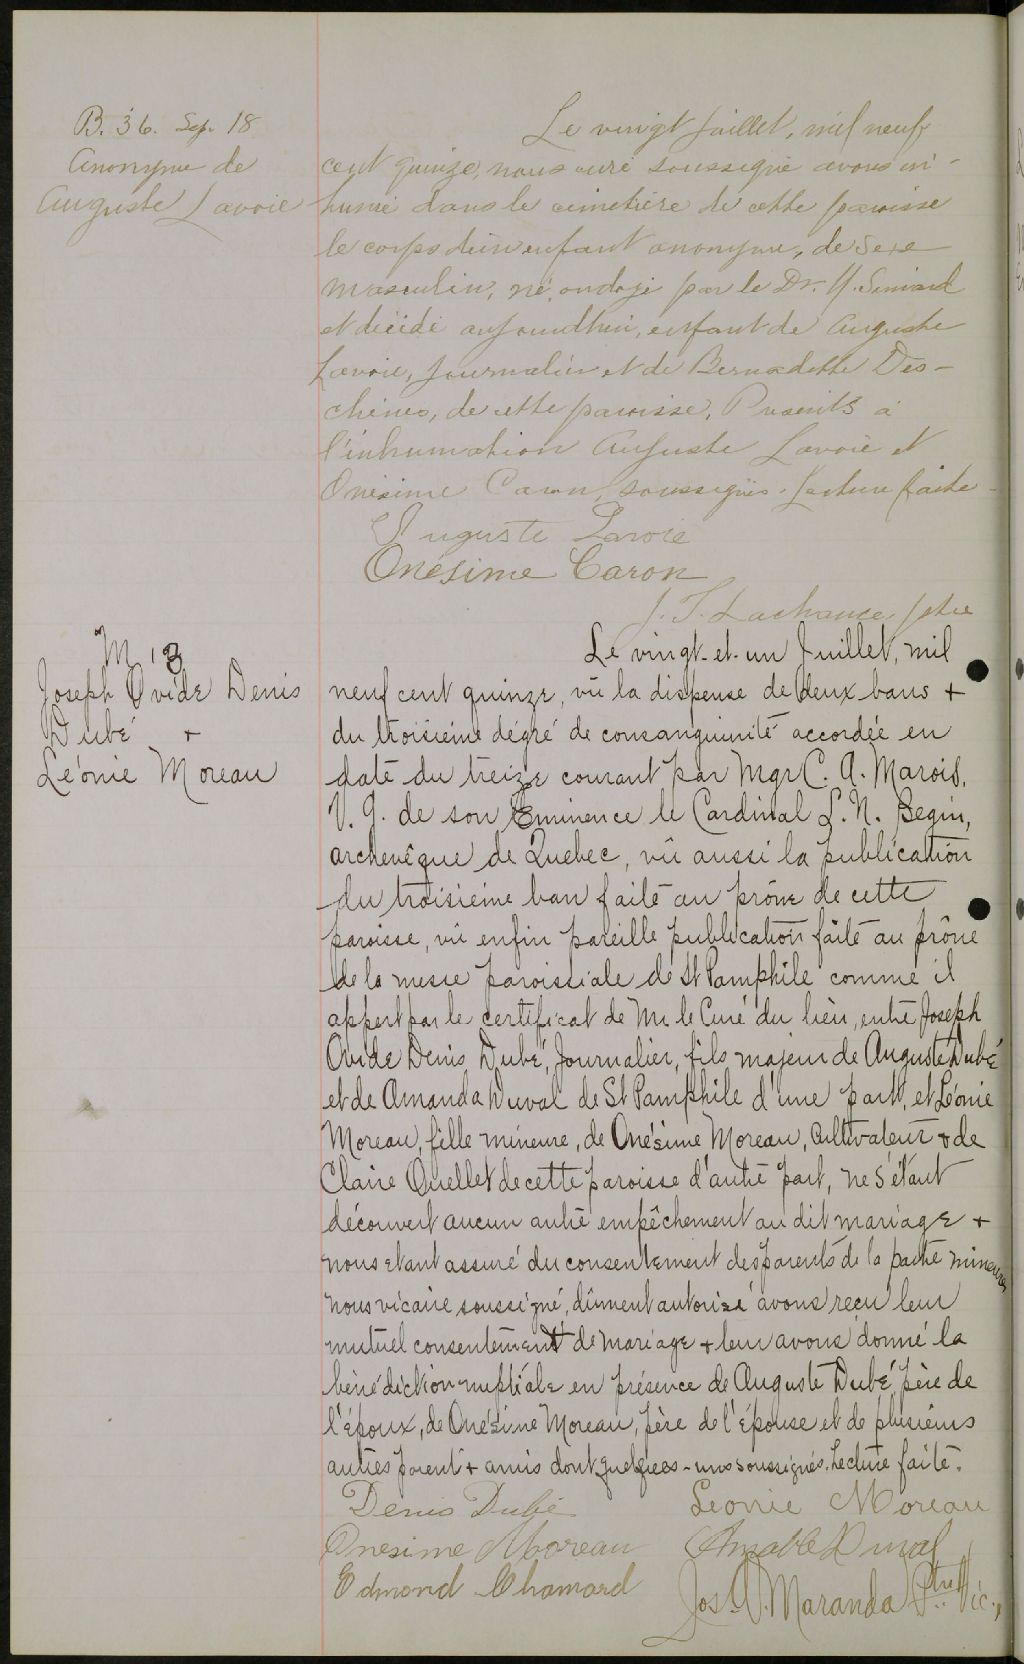 B. 36. Sep. 18
Anonyme de
Auguste Lavoie
Le vingt juillet, mil neuf
cent quinze, nous curé soussigné avons in-
humé dans le cimetière de cette paroisse
le corps d'un enfant anonyme, de sexe
masculin, né, ondoyé par le Dr. H. Simard
et décédé aujourd'hui, enfant de Auguste
Lavoie, journalier et de Bernadette Des-
chênes, de cette paroisse. Présents à
l'inhumation Auguste Lavoie et
Onésime Caron, soussignés. Lecture faite
Auguste Lavoie
Onésime Caron
J. T. Lachance ptre
M 13
Joseph Ovide Denis
Dubé +
Léonie Moreau
Le vingt-et-un Juillet, mil
neuf cent quinze, vû la dispense de deux bans +
du troisième dégré de consanguinité accordée en
date du treize courant par Mgr C. A. Marois,
V. G. de son Eminence le Cardinal L. N. Begin,
archevêque de Quebec, vû aussi la publication
du troisième ban faite au prône de cette
paroisse, vû enfin pareille publication faite au prône
de la messe paroissiale de St Pamphile comme il
appert par le certificat de Mr le Curé du lieu, entre Joseph
Ovide Denis Dubé, Journalier, fils majeur de Auguste Dubé
et de Amanda Duval de St Pamphile d'une part, et Léonie
Moreau, fille mineure, de Onésime Moreau, Cultivateur + de
Claire Ouellet de cette paroisse d'autre part, ne s'étant
découvert aucun autre empêchement au dit mariage +
nous etant assuré du consentement des parents de la partie mineure
nous vicaire soussigné, dûment autorisé avons reçu leur
mutuel consentement de mariage + leur avons donné la
bénédiction nuptiale en présence de Auguste Dubé, père de
l'époux, de Onésime Moreau, père de l'épouse et de plusieurs
autres parent + amis dont quelques-uns soussignés. Lecture faite.
Denis Dubé Leonie Moreau
Onesime Moreau Amable Duval
Edmond Chamard Jos. O. Maranda Ptre Vic.